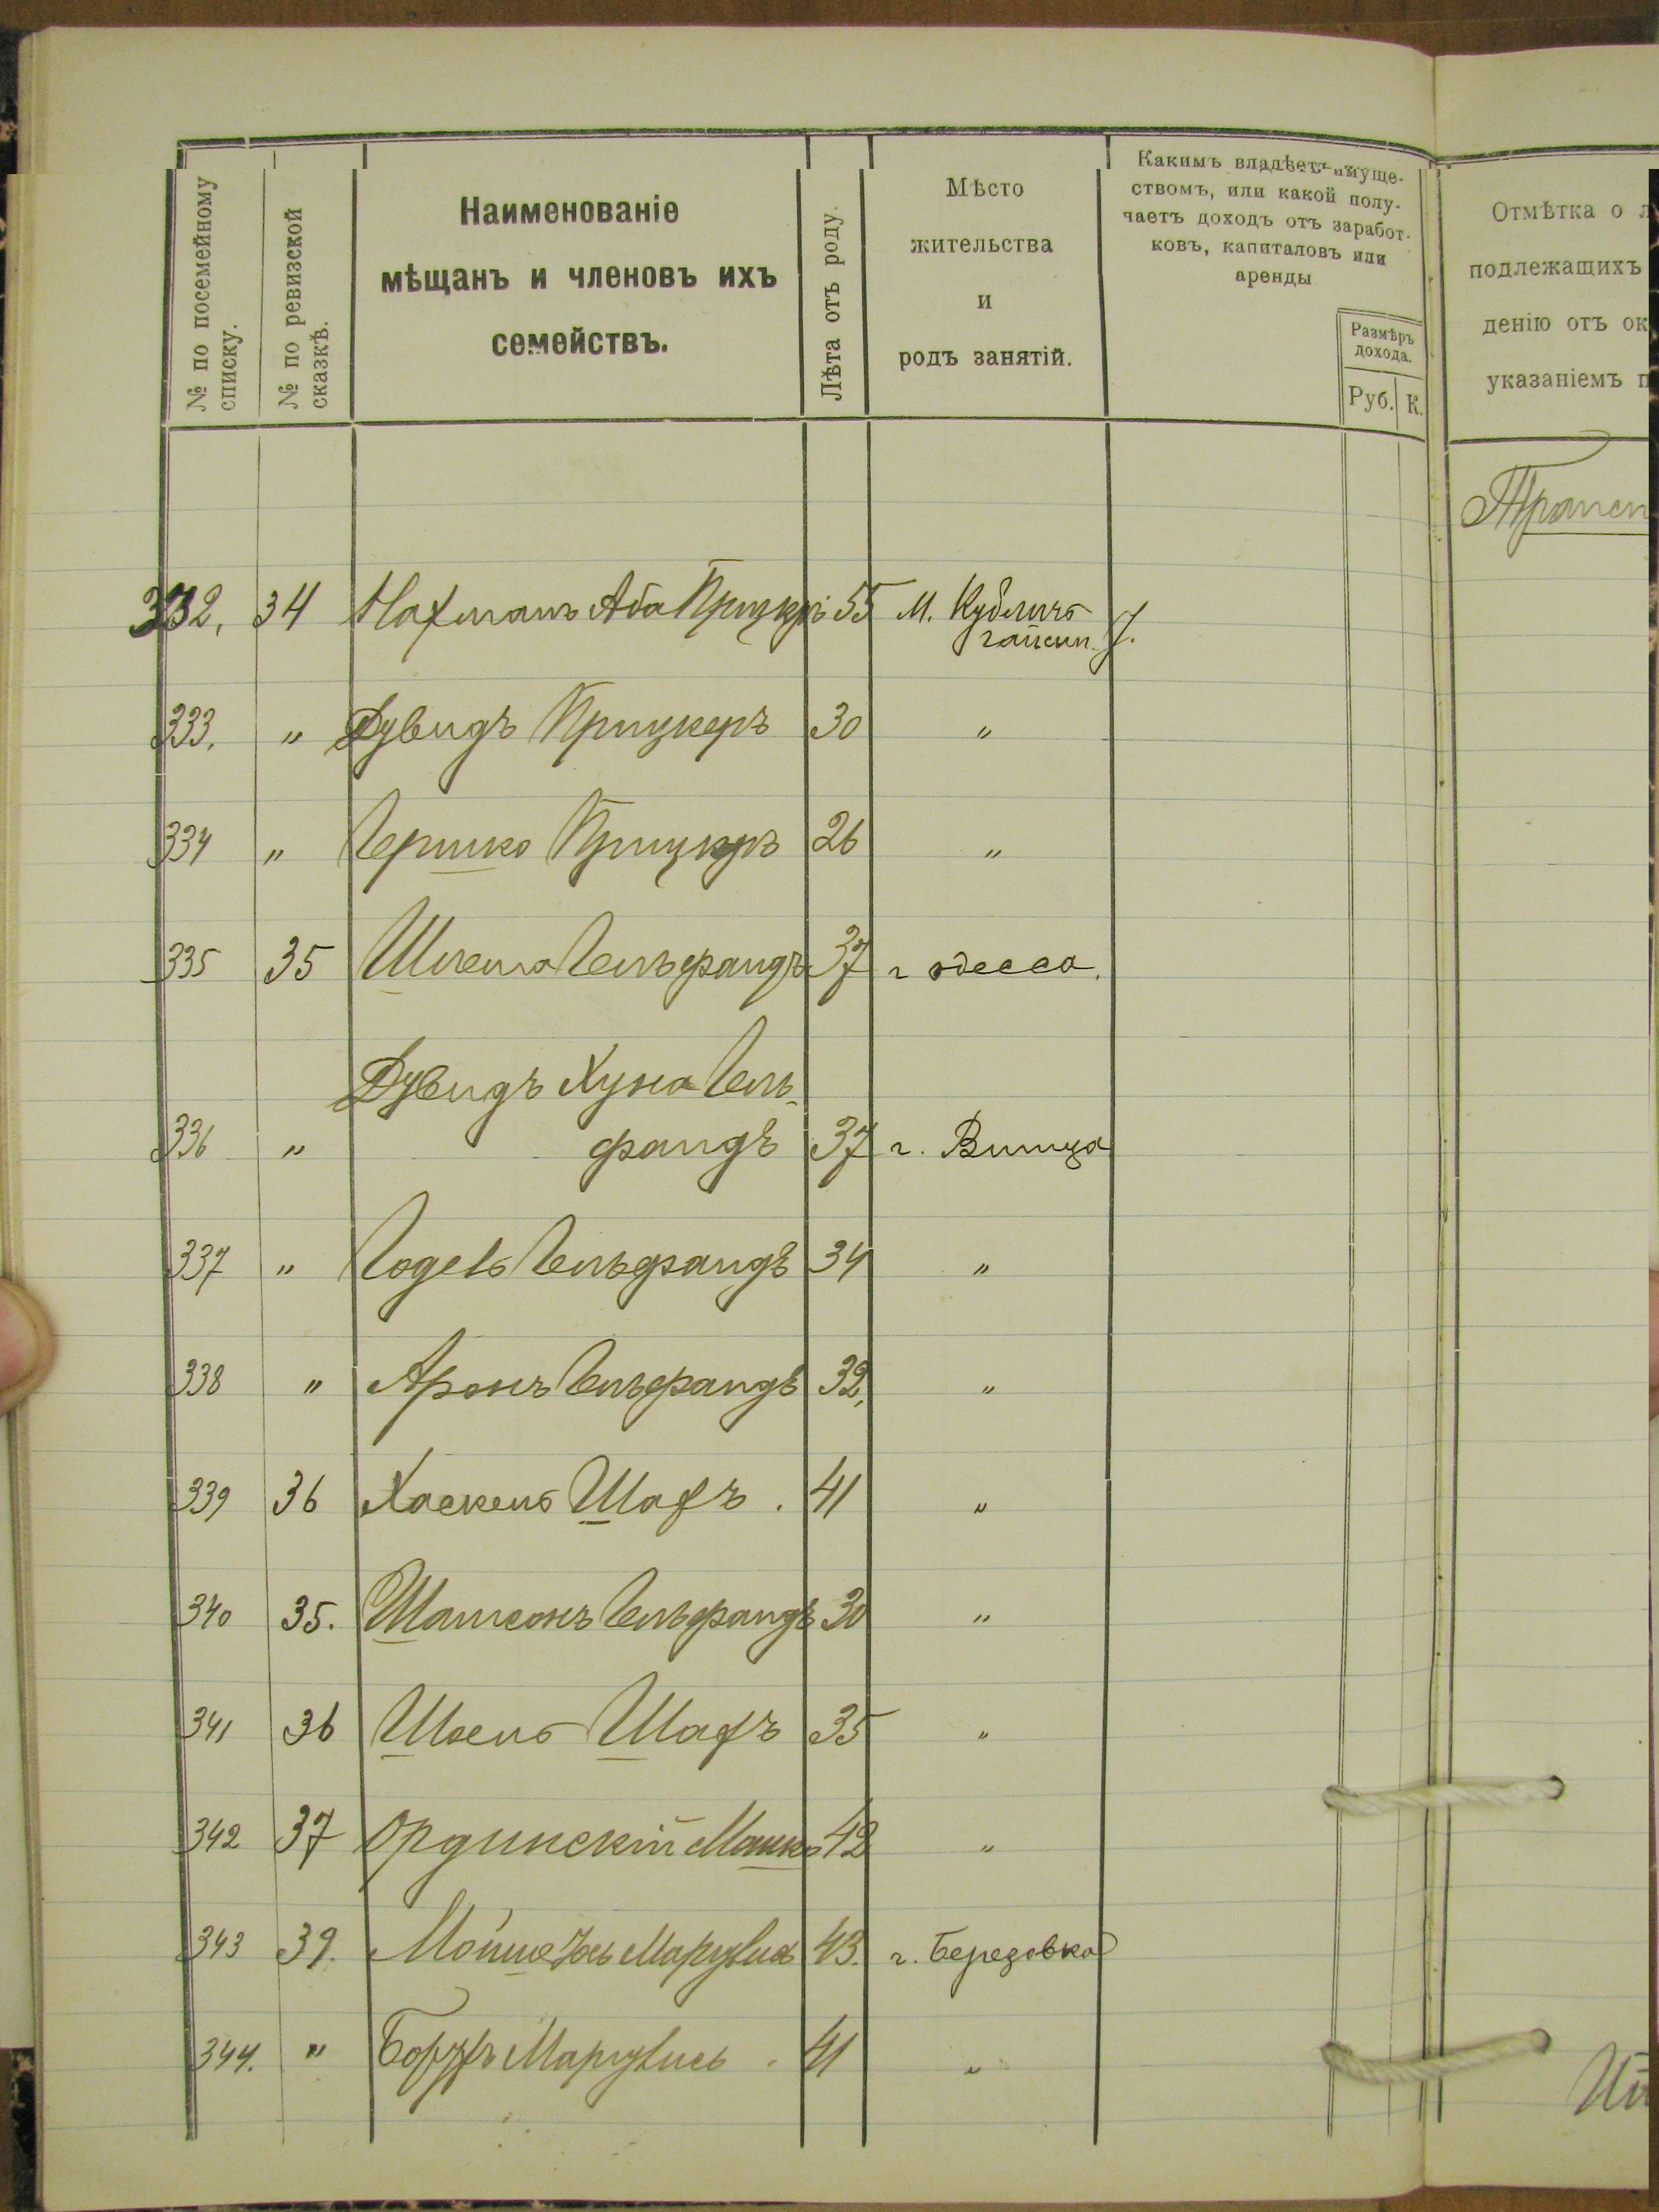 № по посемейному
списку.
№ по ревизской
сказкѣ.
Наименованіе
мѣщанъ и членовъ ихъ
семействъ.
Лѣта отъ роду.
Мѣсто
жительства
и
родъ занятій.
Какимъ владѣетъ имуще-
ствомъ, или какой полу-
чаетъ доходъ отъ заработ-
ковъ, капиталовъ или
аренды
Размѣръ
дохода.
Руб. К.
Отмѣтка о
подлежащихъ
денію отъ ок
указаніемъ п
332. 34 Нахманъ Аба Прицкеръ 55 М. Кубличъ
гайсин. у.
333. " Дувидъ Прицкеръ 30 "
334 " Гершко Прицкеръ 26 "
335 35 Шлема Гельфандъ 37 г одесса.
Дувидъ Хуна Гель-
336 " фандъ 37 г. Винница
337 " Годель Гельфандъ 34 "
338 " Аронъ Гельфандъ 32, "
339 36 Хаскель Шафъ. 41 "
340 35. Шамсонъ Гельфандъ 30 "
341 36 Шафъ 35 "
342 37 Ординскій Мошко 42 "
343 39. Мойше 43. г. Березовка
344. " Борухъ 41 "